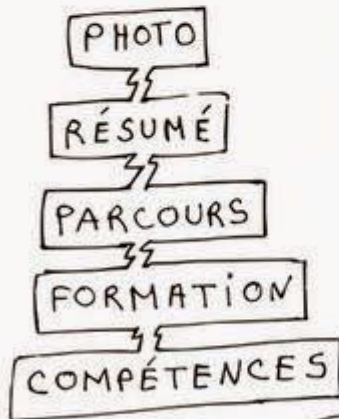 PHOTO
RÉSUMÉ
PARCOURS
FORMATION
COMPÉTENCES